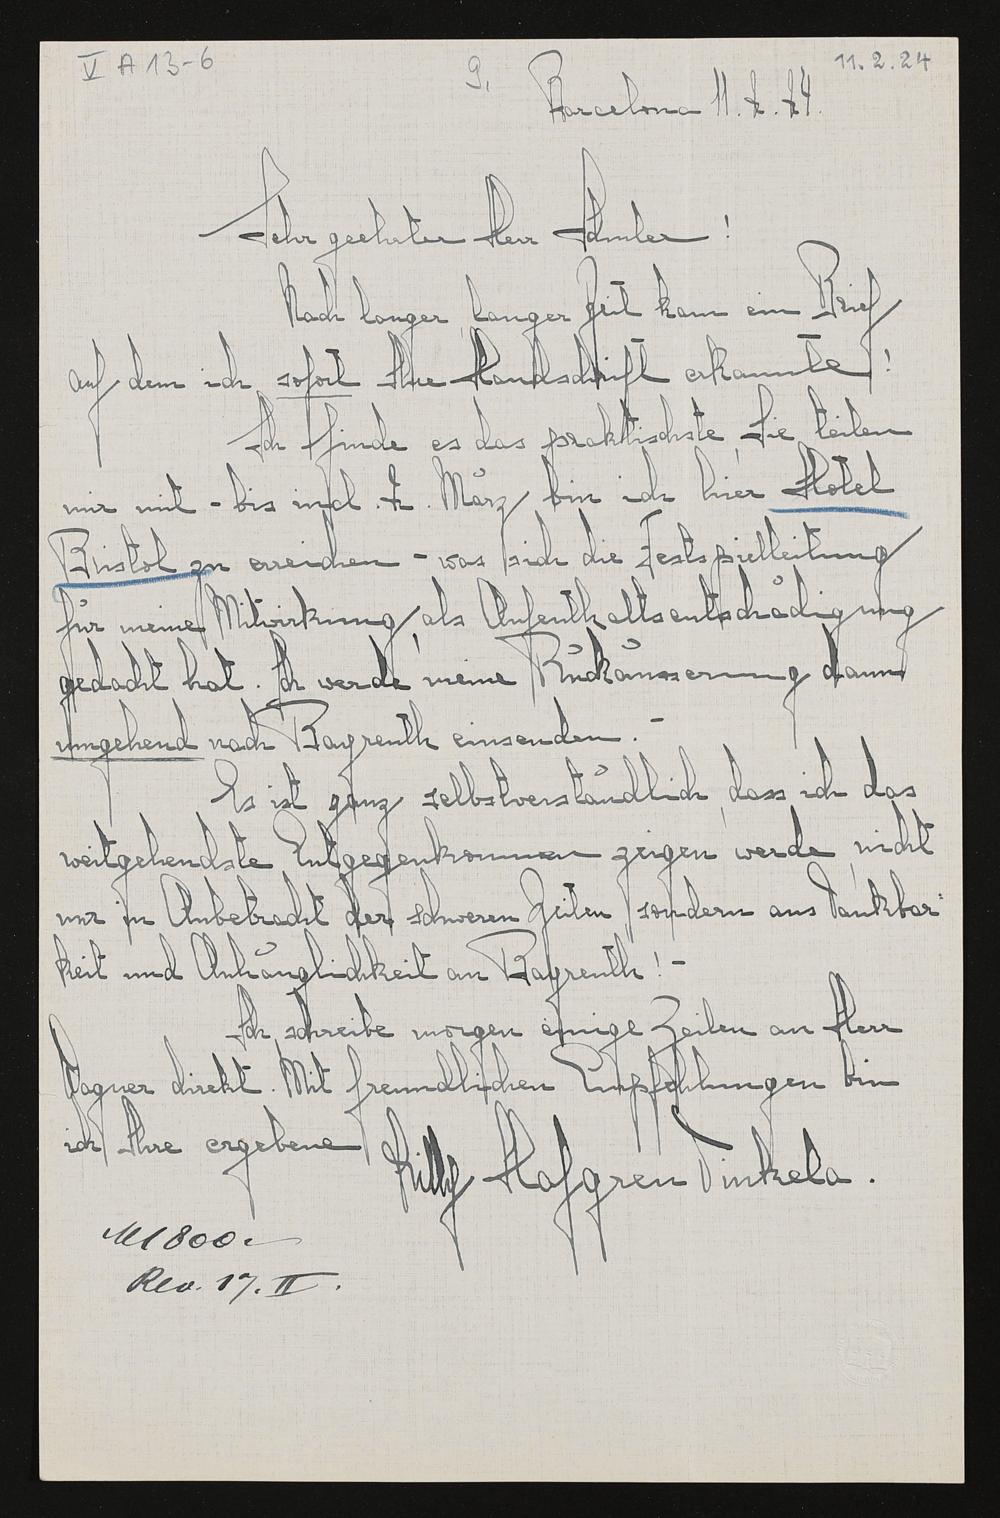 V A 13-6
9.
11.2.24
Barcelona 11. 2. 24.
Sehr geehrter Herr Schuler !
Nach langer, langer Zeit kam ein Brief
auf dem ich sofort Ihre Handschrift erkannte !
Ich finde es das praktischste, Sie teilen
mir mit - bis incl. 2. März bin ich hier Hotel
Bristol zu erreichen - was sich die Festspielleitung
für meine Mitwirkung, als Aufenthaltsentschädigung
gedacht hat. Ich werde meine Rückäusserung dann
umgehend nach Bayreuth einsenden. -
Es ist ganz selbstverständlich, dass ich das
weitgehendste Entgegenkommen zeigen werde, nicht
nur in Anbetracht der schweren Zeiten, sondern aus Dankbar-
keit und Anhänglichkeit an Bayreuth ! -
Ich schreibe morgen einige Zeilen an Herr
Wagner direkt. Mit freundlichen Empfehlungen bin
ich Ihre ergebene
Lilly Hafgren Dinkela.
M 1800.-
17. II.